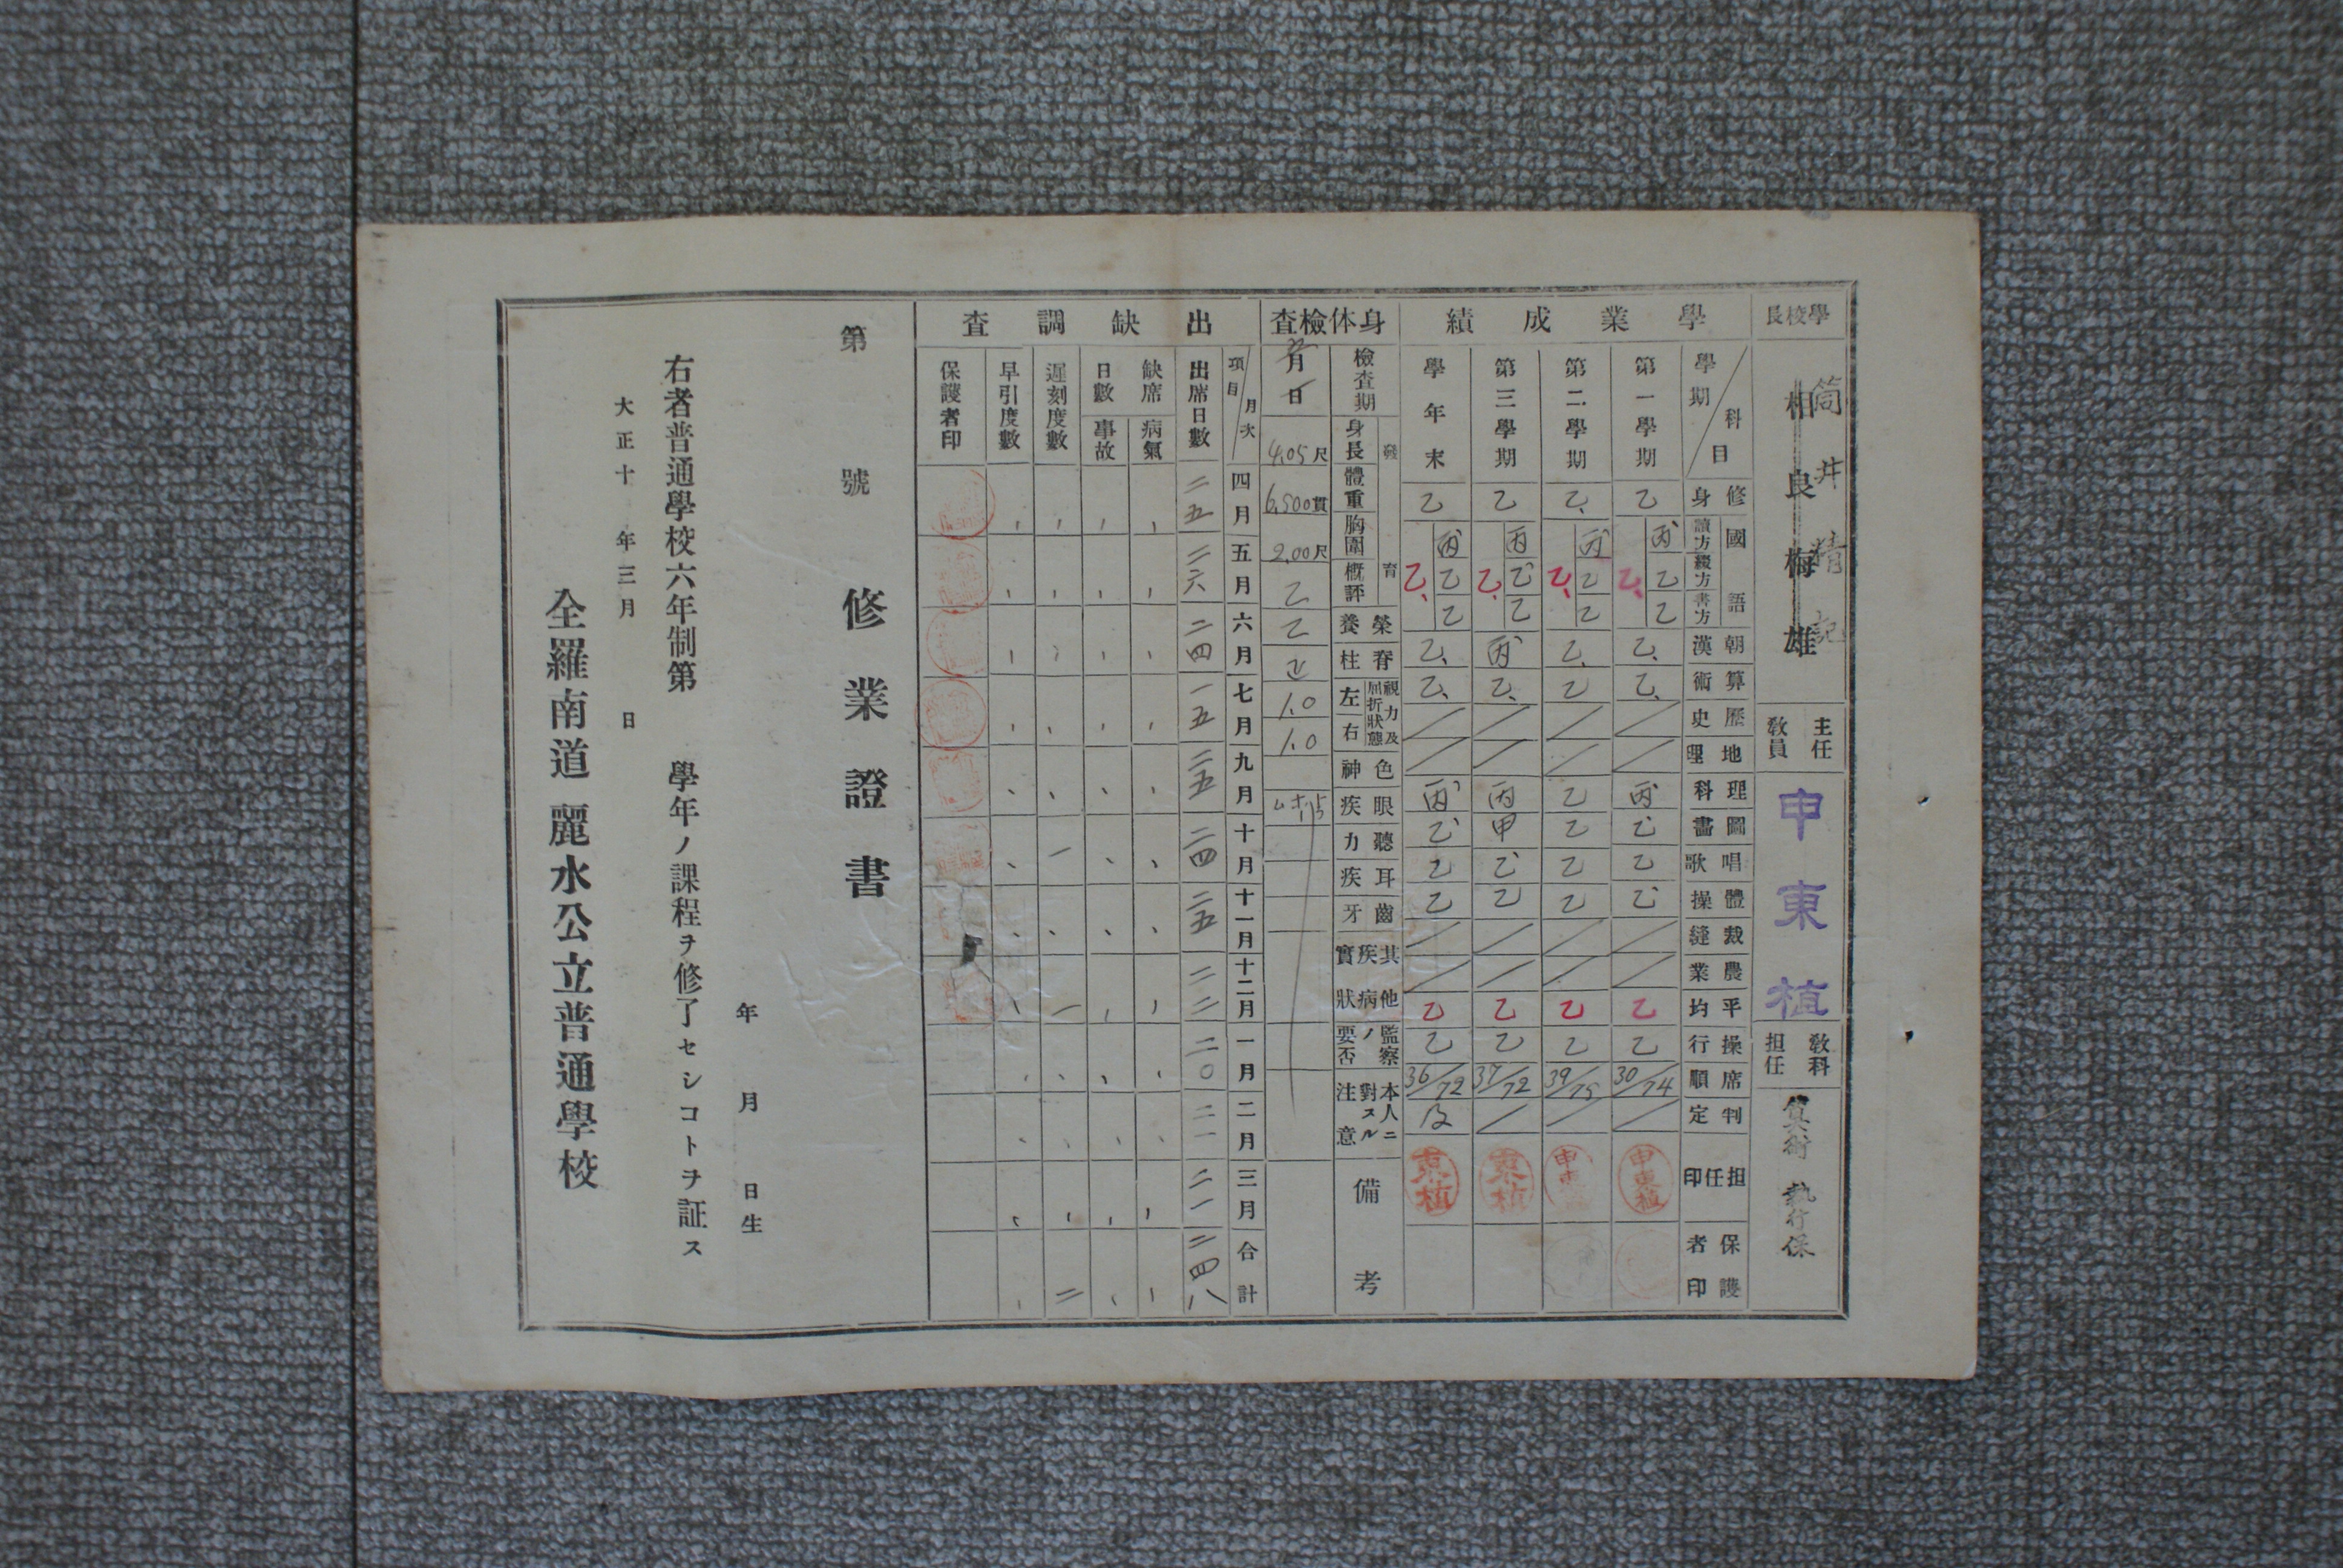 學校長
相良梅雄
筒井精記
主任教員
申東植
教科担任
算術
學業成績
學期 科目
修身
國語
讀方
綴方
書方
朝漢
算術
歷史
地理
理科
圖畵
唱歌
體操
裁縫
農業
平均
操行
席順
判定
担任印
保護者印
第一學期
乙
丙
乙
乙
乙
乙
乙
丙
乙
乙
乙
乙
乙
30/74
申東植
第二學期
乙
丙
乙
乙
乙
乙
乙
乙
乙
乙
乙
乙
乙
39/75
第三學期
乙
丙
乙
乙
乙
丙
乙
丙
甲
乙
乙
乙
乙
37/72
東植
學年末
乙
丙
乙
乙
乙
乙
乙
丙
乙
乙
乙
乙
乙
36/72
東植
身体檢査
檢査期
發育
身長
體重
胸圍
概評
榮養
脊柱
視力及屈折狀態
左
右
色神
眼疾
聽力
耳疾
齒牙
其他疾病實狀
監察ノ要否
本人ニ對スル注意
備考
月 日
4.05尺
6.500貫
2.00尺
乙
乙
正
1.0
1.0
出缺調査
項目 月次
四月
五月
六月
七月
九月
十月
十一月
十二月
一月
二月
三月
合計
出席日數
二五
二六
二四
一五
二五
二四
二五
二二
二〇
二一
二一
二四八
缺席日數
病氣
事故
遲刻度數
一
一
二
早引度數
保護者印
第 號
修業證書
年 月 日生
右者普通學校六年制第 學年ノ課程ヲ修了セシコトヲ証ス
大正十 年三月 日
全羅南道麗水公立普通學校